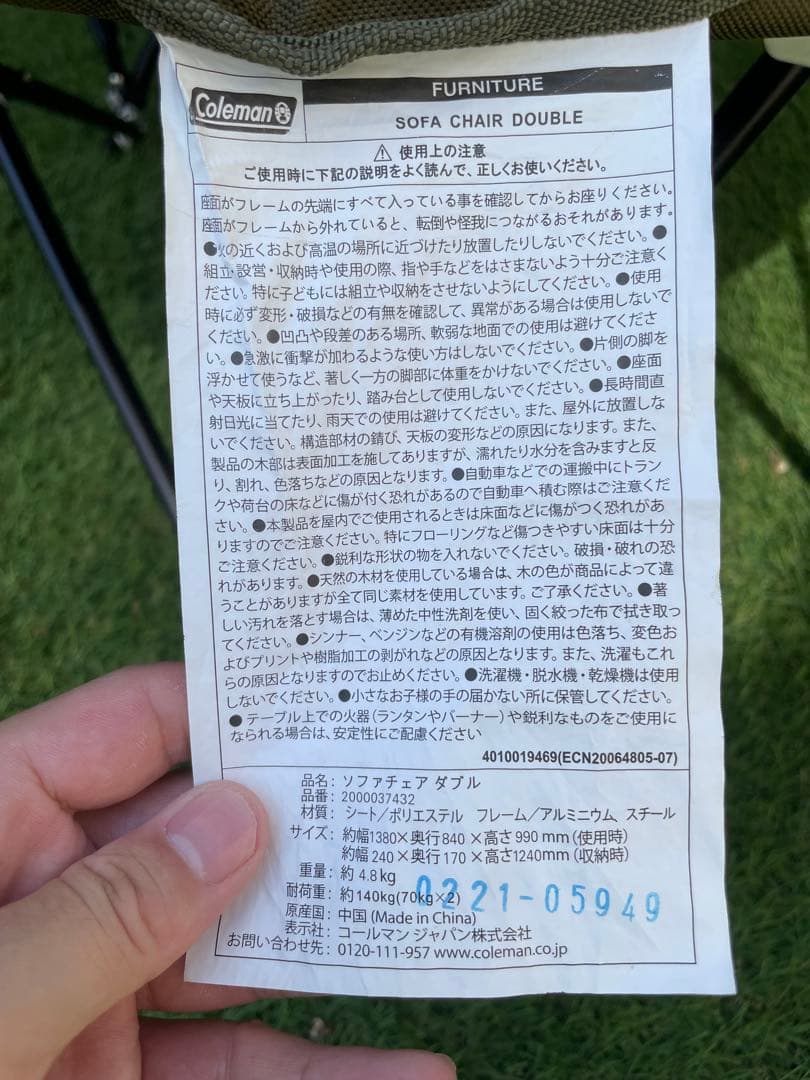 Coleman
FURNITURE
SOFA CHAIR DOUBLE
⚠ 使用上の注意
ご使用時に下記の説明をよく読んで、正しくお使いください。
座面がフレームの先端にすべて入っている事を確認してからお座りください。
座面がフレームから外れていると、転倒や怪我につながるおそれがあります。
●火の近くおよび高温の場所に近づけたり放置したりしないでください。●
組立・設営・収納時や使用の際、指や手などをはさまないよう十分ご注意く
ださい。特に子どもには組立や収納をさせないようにしてください。●使用
時に必ず変形・破損などの有無を確認して、異常がある場合は使用しないで
ください。●凹凸や段差のある場所、軟弱な地面での使用は避けてくださ
い。●急激に衝撃が加わるような使い方はしないでください。●片側の脚を
浮かせて使うなど、著しく一方の脚部に体重をかけないでください。●座面
や天板に立ち上がったり、踏み台として使用しないでください。●長時間直
射日光に当てたり、雨天での使用は避けてください。また、屋外に放置しな
いでください。構造部材の錆び、天板の変形などの原因になります。また、
製品の木部は表面加工を施してありますが、濡れたり水分を含みますと反
り、割れ、色落ちなどの原因となります。●自動車などでの運搬中にトラン
クや荷台の床などに傷が付く恐れがあるので自動車へ積む際はご注意くだ
さい。●本製品を屋内でご使用されるときは床面などに傷がつく恐れがあ
りますのでご注意ください。特にフローリングなど傷つきやすい床面は十分
ご注意ください。●鋭利な形状の物を入れないでください。破損・破れの恐
れがあります。●天然の木材を使用している場合は、木の色が商品によって違
うことがありますが全て同じ素材を使用しています。ご了承ください。●著
しい汚れを落とす場合は、薄めた中性洗剤を使い、固く絞った布で拭き取っ
てください。●シンナー、ベンジンなどの有機溶剤の使用は色落ち、変色お
よびプリントや樹脂加工の剥がれなどの原因となります。また、洗濯もこれ
らの原因となりますのでお止めください。●洗濯機・脱水機・乾燥機は使用
しないでください。●小さなお子様の手の届かない所に保管してください。
● テーブル上での火器(ランタンやバーナー)や鋭利なものをご使用に
なられる場合は、安定性にご配慮ください
4010019469(ECN20064805-07)
品名: ソファチェア ダブル
品番: 2000037432
材質: シート/ポリエステル フレーム/アルミニウム、スチール
サイズ: 約幅1380×奥行840×高さ990mm(使用時)
約幅240×奥行170×高さ1240mm(収納時)
重量: 約4.8kg
耐荷重: 約140kg(70kg×2)
0221-05949
原産国: 中国(Made in China)
表示社: コールマン ジャパン株式会社
お問い合わせ先: 0120-111-957 www.coleman.co.jp